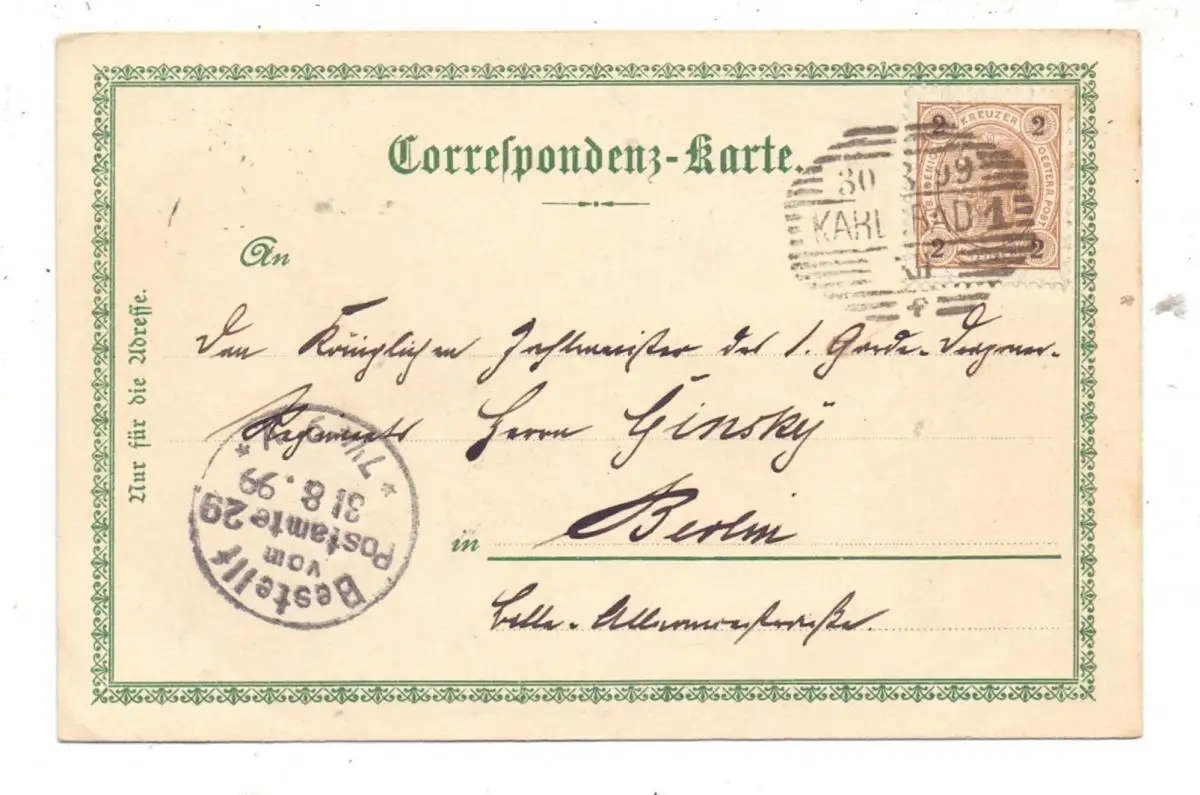 Correspondenz-Karte.
2 KREUZER 2
OESTERR. POST
2 2
30 8 99
KARLSBAD 1
An
Nur für die Adresse.
Den Königlichen Zahlmeister des 1. Garde-Dragoner-
Regiments Herrn Ginsky
in Berlin
Belle-Alliancestraße.
Bestellt
vom
Postamte 29
31 8. 99
* 7¼ *